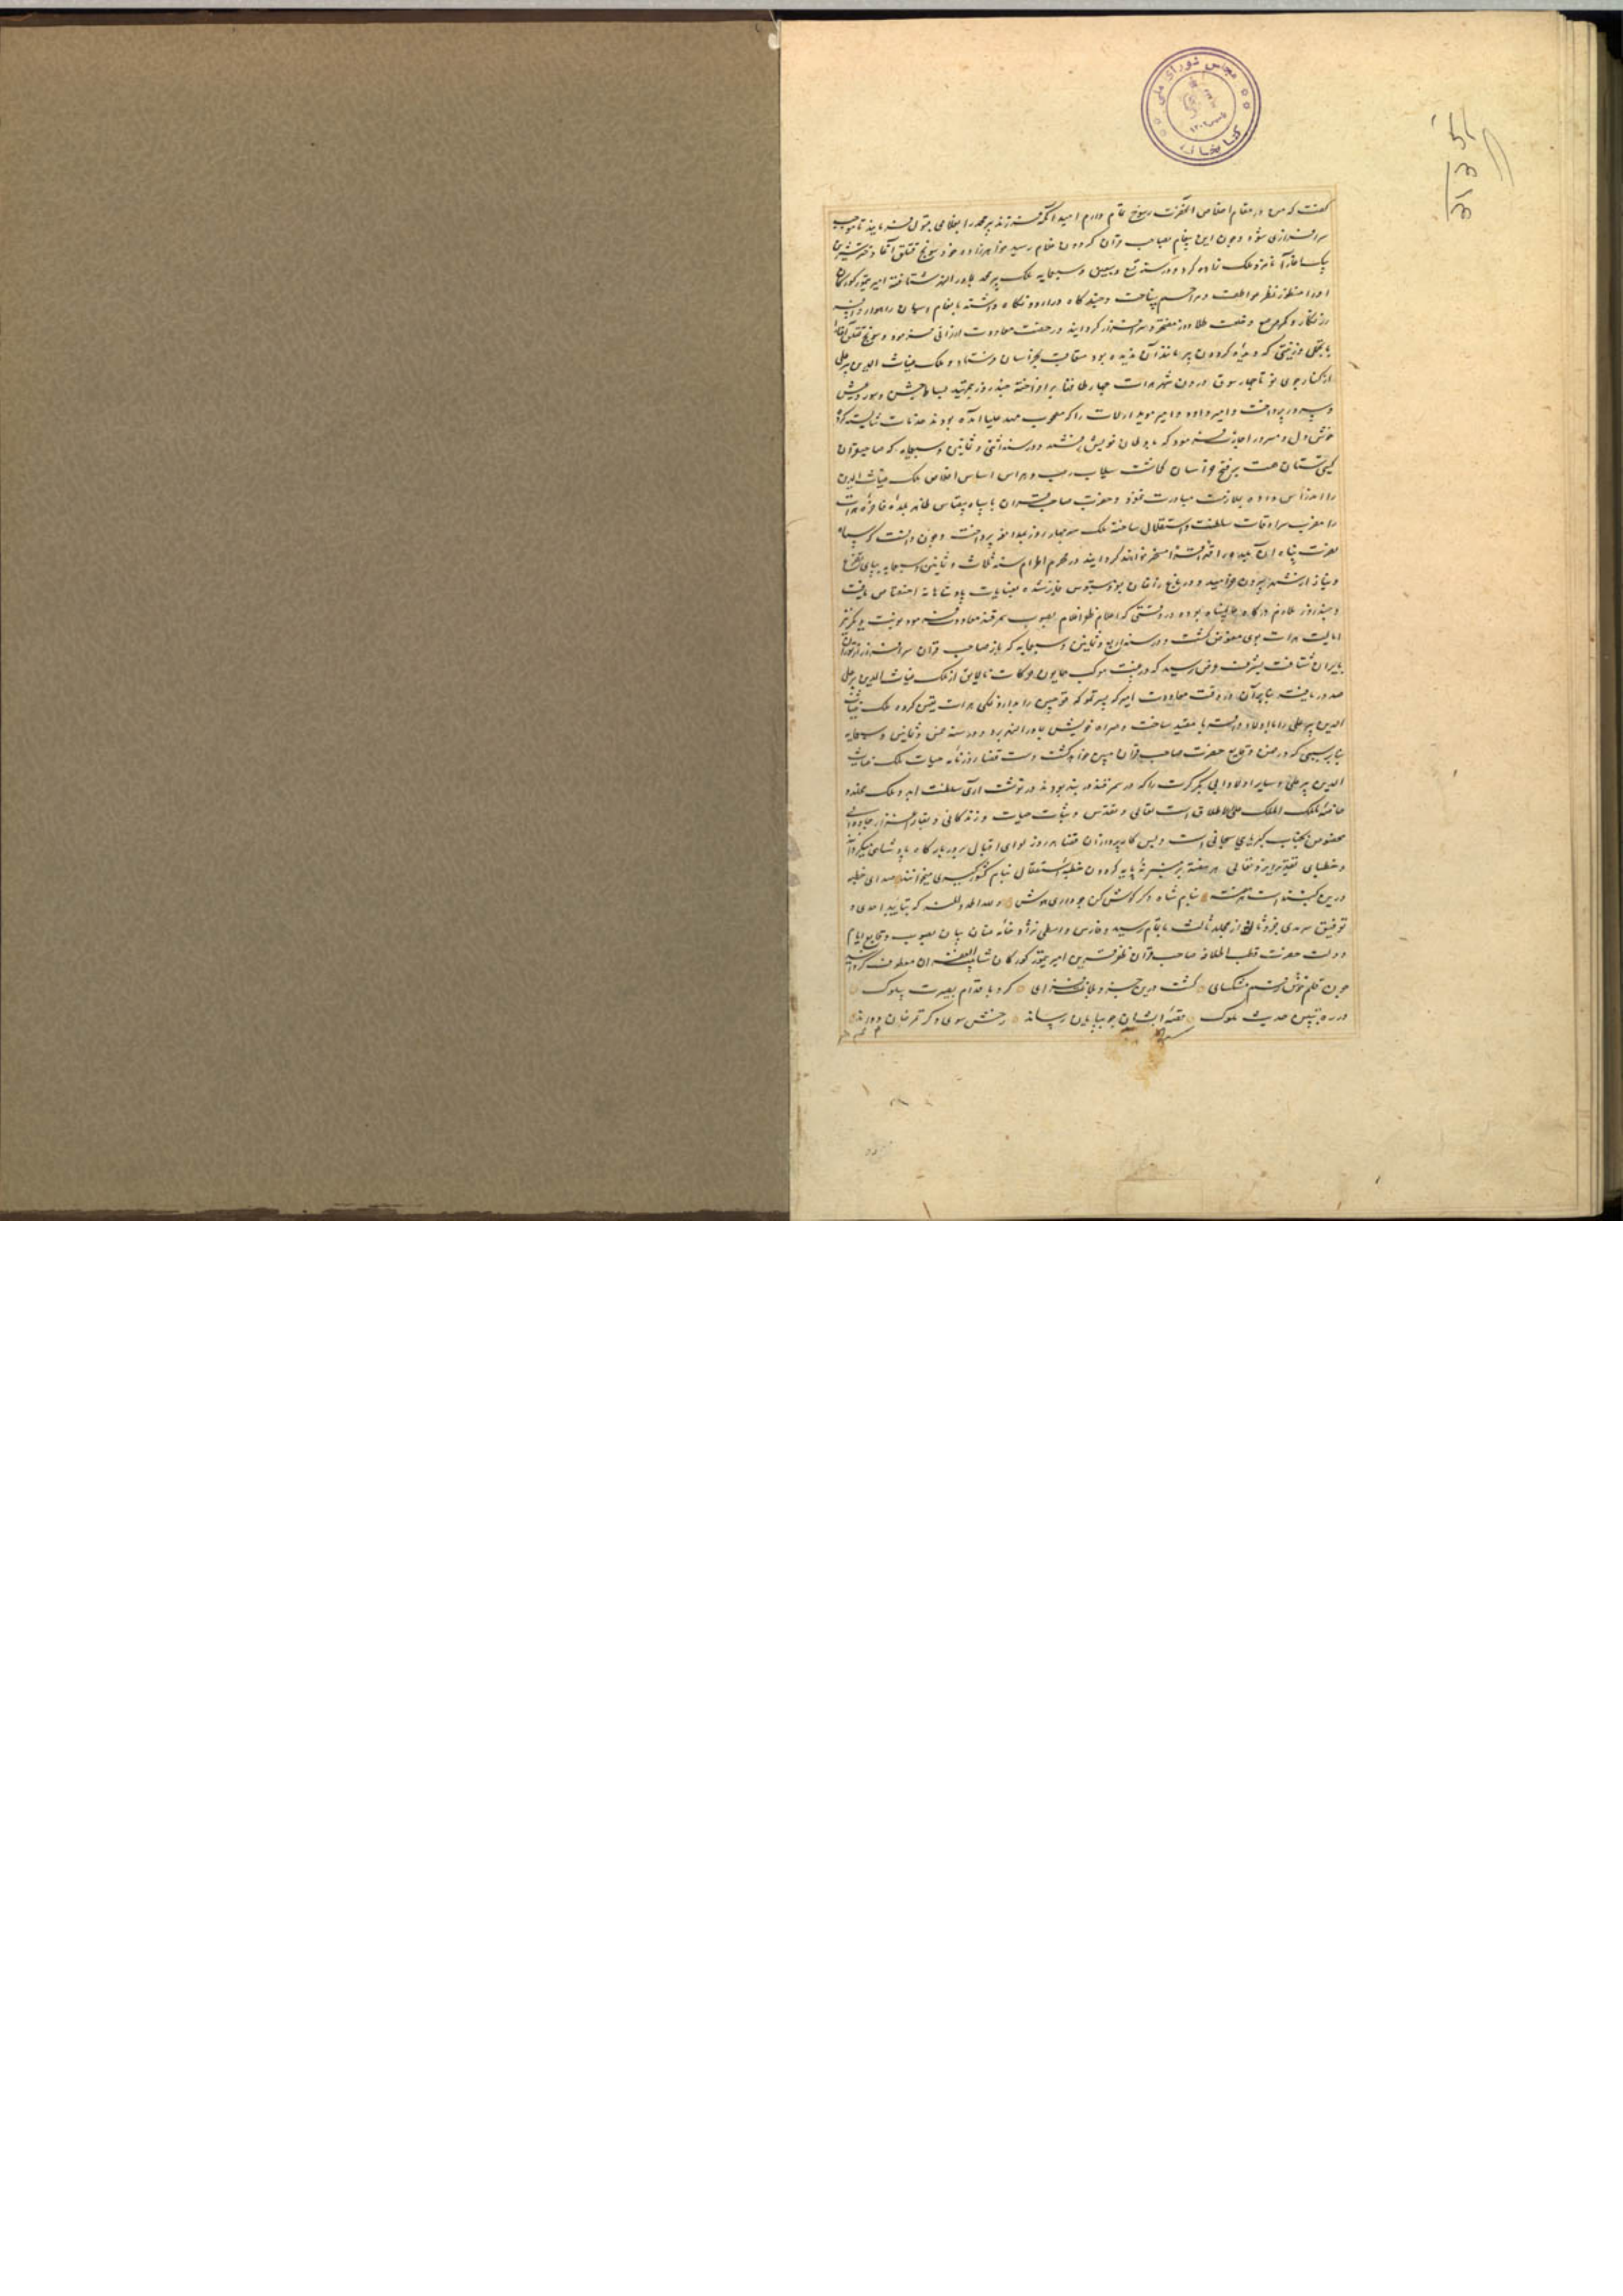 مجلس شورای ملی
کتابخانه
کفت که من در مقام اخلاص آنحضرت رسوخ تمام دارم امید آنکه فرزند پیر محمد را بغلامی قبول فرمایند تا موجب
سرافرازی شود و چون این پیغام بصاحب قران کردون غلام رسید خواهرزاده خود سونج قتلق آقا دختر شیرین
بیک آغا را نامزد ملک زاده کرد و در سنه تسع و سبعین و سبعمایه ملک پیر محمد بماوراالنهر شتافته امیر تیمور کورکان
او را منظور نظر عواطف و مراحم ساخت و چند کاه در اردو نکاه داشته بانعام اسبان راهوار و زین
زرنکار و کمر مرصع و خلعت طلادوز مفتخر و سرافراز کردانید و رخصت معاودت ارزانی فرمود و سونج قتلق آقا را
با تجملی و زینتی که دیده کردون پیر مانند آن ندیده بود متعاقب بخراسان فرستاد و ملک غیاث الدین پیرعلی
از کنار جوی نو تا چهارسوق درون شهر هرات چهار طاقها برافراخته چند روز بتمهید بساط جشن و سور و عیش
و سرور پرداخت و امیر داود و امیر موید ارلات را که مصحوب مهد علیا آمده بودند خدمات شایسته کرد
خوش دل و مسرور اجازت فرمود که باوطان خویش رفتند و در سنه اثنی و ثمانین و سبعمایه که صاحبقران
کیتی ستان همت بر فتح خراسان کماشت سیلاب رعب و هراس اساس اخلاص ملک غیاث الدین
را اندراس داده بملازمت مبادرت ننمود و حضرت صاحب قران با سپاه بیقیاس ظاهر بلده فاخره هرات
را مضرب سرادقات سلطنت و استقلال ساخته ملک سه چهار روز بمدافعه پرداخت و چون دانست که سپاه
نصرت پناه آن بلده را قهرا قسرا مسخر خواهند کردانید در محرم الحرام سنه ثلاث و ثمانین و سبعمایه بپای تضرع
و نیاز از شهر بیرون خرامید و در باغ زاغان بعز دستبوس فایز شده بعنایات پادشاهانه اختصاص یافت
و چند روز ملازم درکاه عالم پناه بوده در وقتی که اعلام ظفر اعلام بصوب سمرقند معاودت فرمود نوبت دیکر
ایالت هرات بوی مفوض کشت و در سنه اربع و ثمانین و سبعمایه که باز صاحب قران سرافراز از توران
بایران شتافت بشرف عرض رسید که در غیبت موکب همایون حرکات نالایق از ملک غیاث الدین پیرعلی
صدور یافته بنابرآن در وقت معاودت امیر که پسر تموکه قوچین را بداروغکی هرات تعیین کرده ملک غیاث
الدین پیر علی را با اولاد و اقربا مقید ساخت و همراه خویش بماوراالنهر برد و در سنه خمس و ثمانین و سبعمایه
بنابر سببی که در ضمن وقایع حضرت صاحب قران مبین خواهد کشت دست قضا روزنامه حیات ملک غیاث
الدین پیرعلی و سایر اولاد ابی بکر کرت را که در سمرقند در بند بودند در نوشت آری سلطنت ابد و ملک مخلد
خاصه ملک الملک علی الاطلاق است تعالی و تقدس و ثبات حیات و زندکانی و بقا
مخصوص بجناب کبریای سبحانی است و بس کارپردازان قضا هر روز لوای اقبال بر در بارکاه پادشاهی میکردانند
و خطبای تقدیر ایزد تعالی هر هفته بر منبر نه پایه کردون خطبه استقلال بنام کشورکیری میخوانند صدای خطبه
درین کنبد است هر هفته بنام شاه دکر کوش کن چو داری هوش و لله الحمد و المنه که بتایید احدی و
توفیق سرمدی جزو ثالث از مجلد ثالث باتمام رسید و فارس واسطی نژاد خامه عنان بیان بصوب وقایع ایام
دولت حضرت قطب الخلافه صاحب قران ظفر قرین امیر تیمور کورکان معطوف کردانید
چون قلم خوش رقم مشکسای کشت درین جزو بلاغت فزای کرد باقدام بصیرت سلوک
در ره تبیین حدیث ملوک قصه ایشان چو بپایان رساند رخش سوی ذکر تمرخان دواند